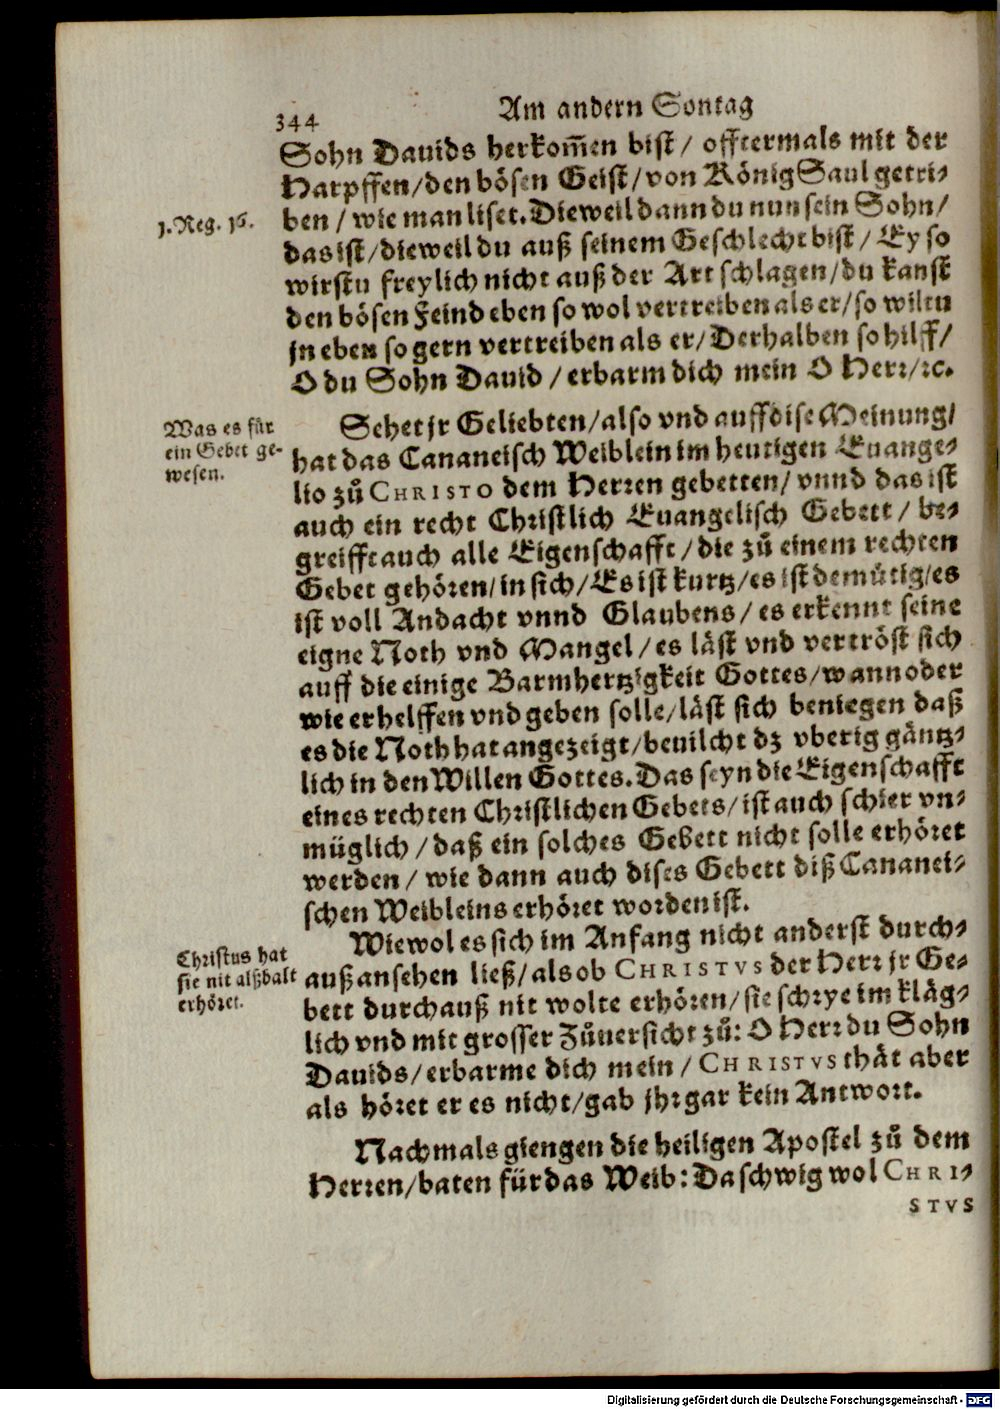 344
Am andern Sontag
Sohn Dauids herkom̄en bist / offtermals mit der
Harpffen / den bösen Geist / von König Saul getri⸗
1. Reg. 16.
ben / wie man liset. Dieweil dann du nun sein Sohn /
das ist / dieweil du auß seinem Geschlecht bist / Ey so
wirstu freylich nicht auß der Art schlagen / du kanst
den bösen Feind eben so wol vertreiben als er / so wiltu
jn eben so gern vertreiben als er / Derhalben so hilff /
O du Sohn Dauid / erbarm dich mein O Herr / ꝛc.
Was es für
ein Gebet ge-
wesen.
Sehet jr Geliebten / also vnd auff dise Meinung /
hat das Cananeisch Weiblein im heutigen Euange⸗
lio zů CHRISTO dem Herren gebetten / vnnd das ist
auch ein recht Christlich Euangelisch Gebett / be⸗
greifft auch alle Eigenschafft / die zů einem rechten
Gebet gehören / in sich / Es ist kurtz / es ist demütig / es
ist voll Andacht vnnd Glaubens / es erkennt seine
eigne Noth vnd Mangel / es läst vnd vertröst sich
auff die einige Barmhertzigkeit Gottes / wann oder
wie er helffen vnd geben solle / läst sich beniegen daß
es die Noth hat angezeigt / beuilcht dz vberig gäntz⸗
lich in den Willen Gottes. Das seyn die Eigenschafft
eines rechten Christlichen Gebets / ist auch schier vn⸗
müglich / daß ein solches Gebett nicht solle erhöret
werden / wie dann auch dises Gebett diß Cananei⸗
schen Weibleins erhöret worden ist.
Christus hat
sie nit alßbalt
erhöret.
Wiewol es sich im Anfang nicht anderst durch⸗
auß ansehen ließ / als ob CHRISTVS der Herr jr Ge⸗
bett durchauß nit wolte erhören / sie schrye im kläg⸗
lich vnd mit grosser Zůuersicht zů: O Herr du Sohn
Dauids / erbarme dich mein / CHRISTVS thät aber
als höret er es nicht / gab jhr gar kein Antwort.
Nachmals giengen die heiligen Apostel zů dem
Herren / baten für das Weib: Da schwig wol CHRI⸗
STVS
Digitalisierung gefördert durch die Deutsche Forschungsgemeinschaft - DFG